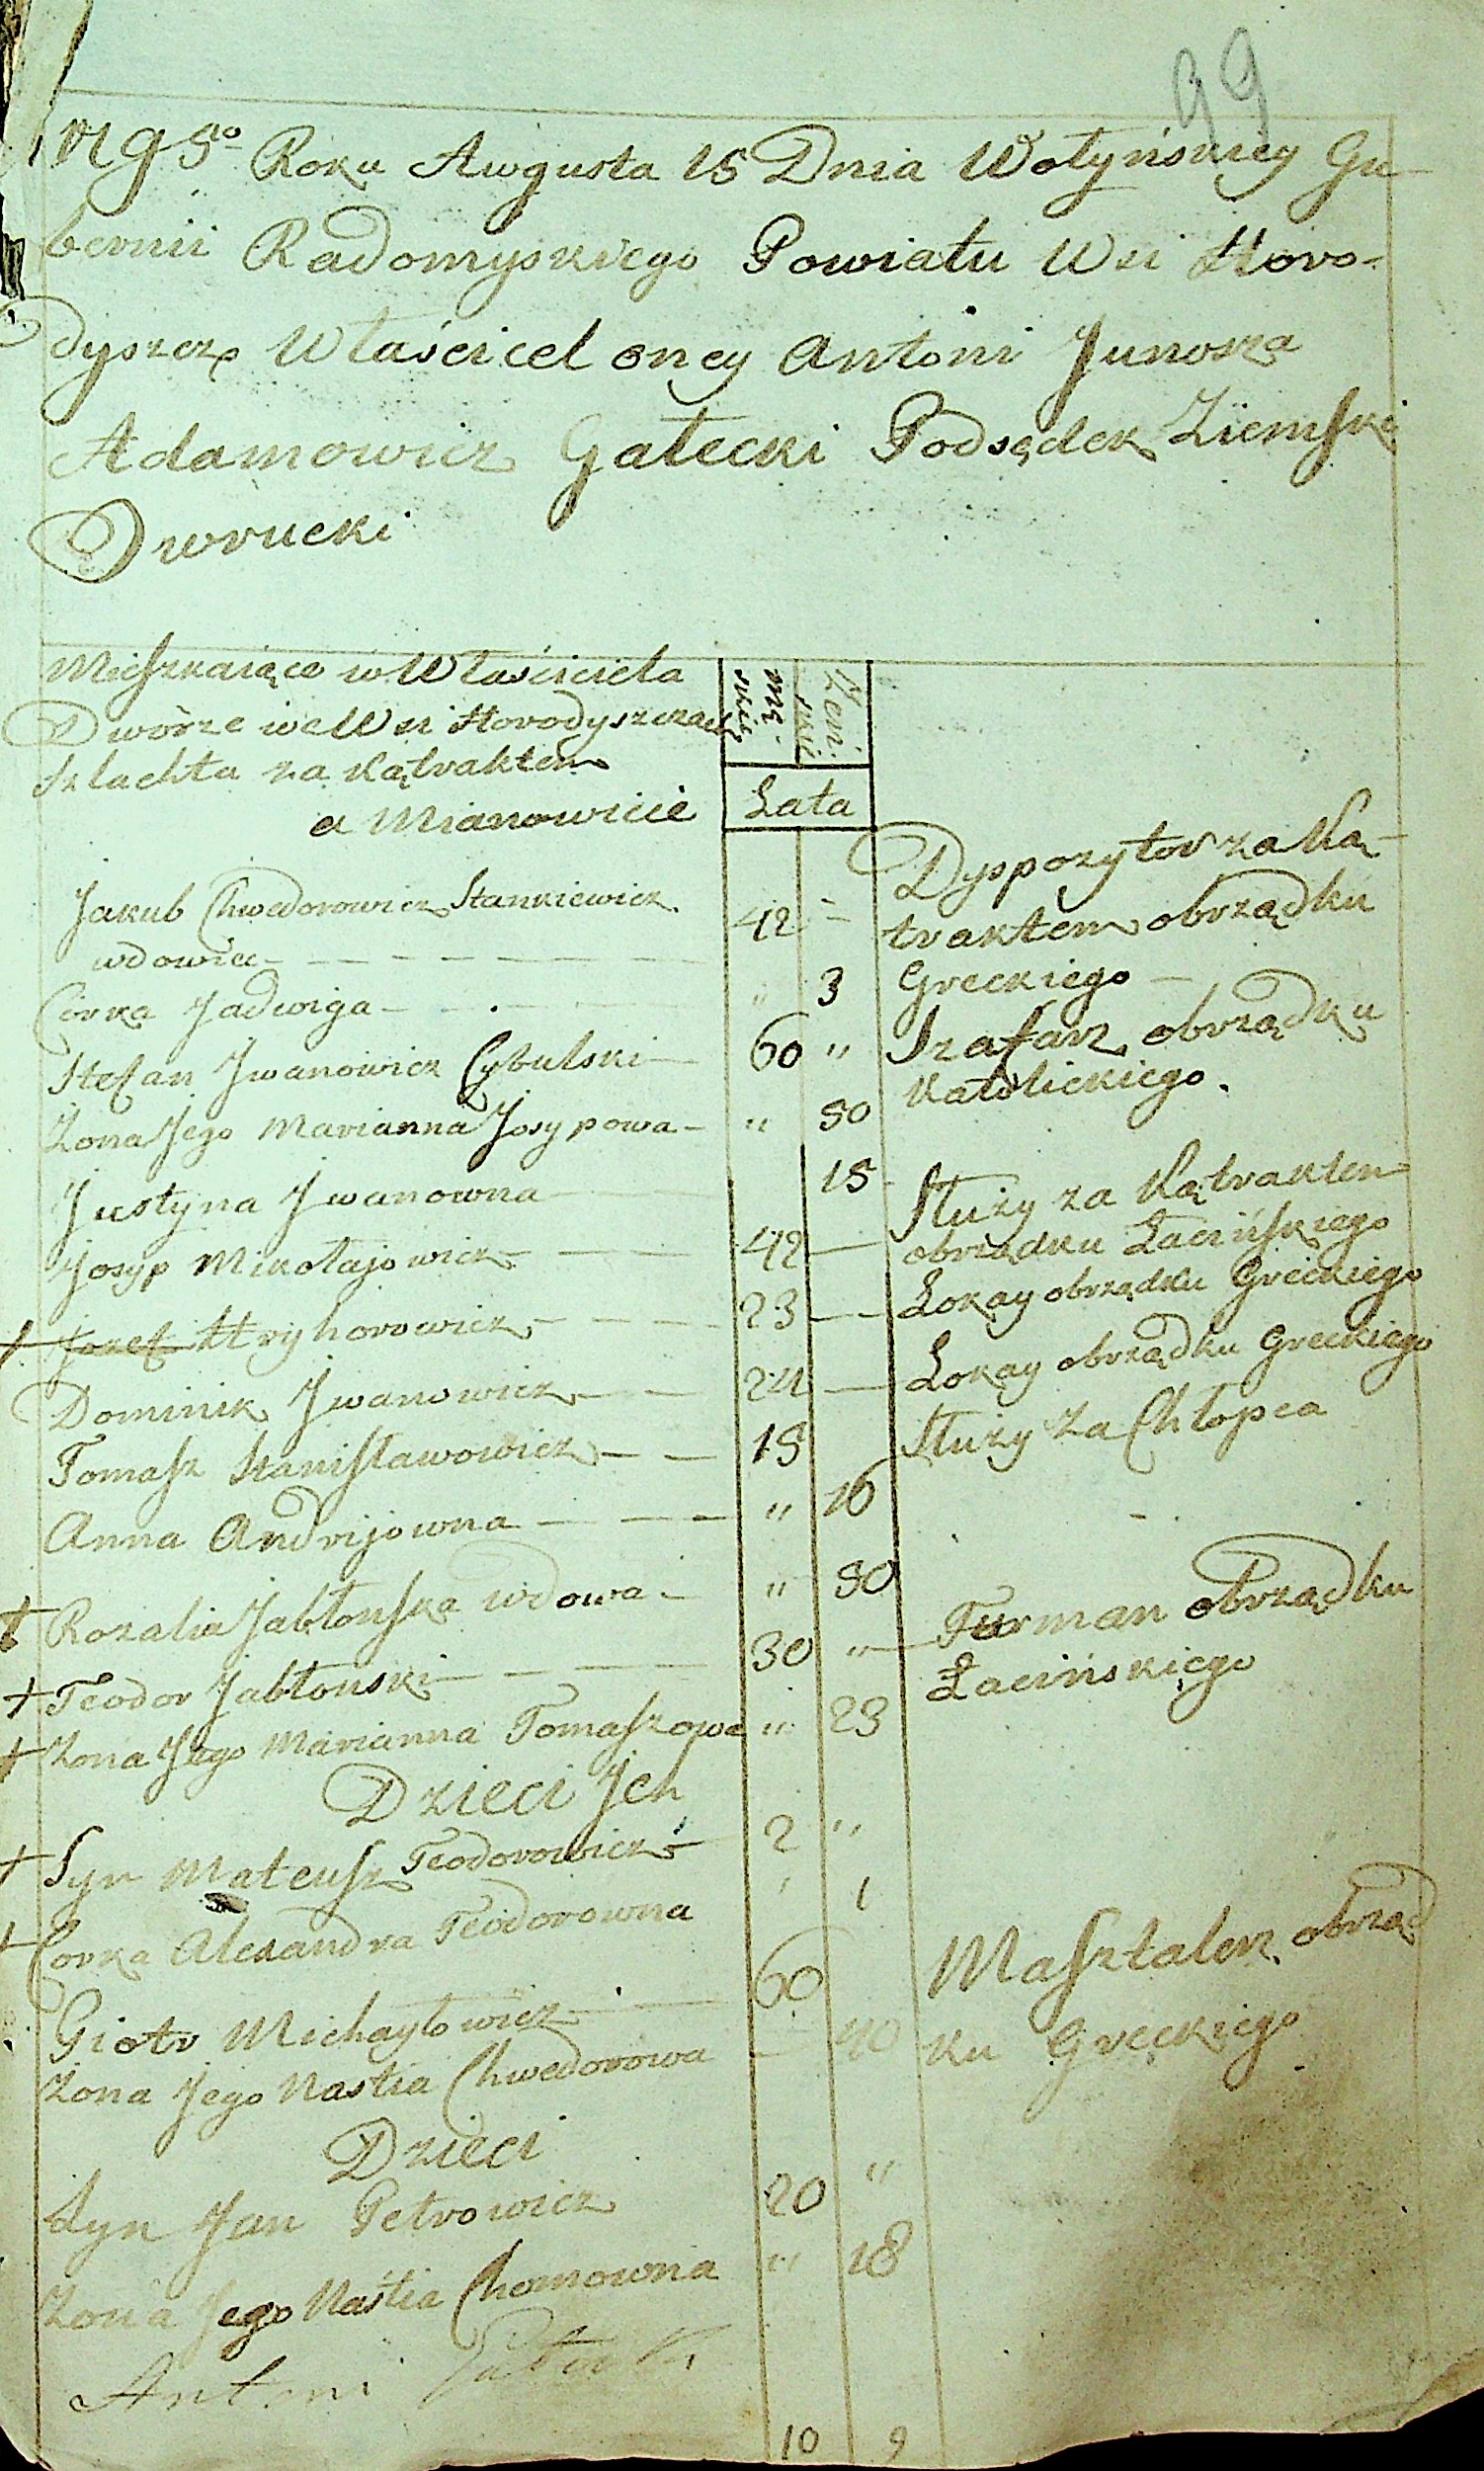 99
1795º Roku Awgusta 15 Dnia Wołyńskiey Gu-
bernii Radomyskiego Powiatu Wsi Horo-
dyszcz Właścicel oney Antoni Junosza
Adamowicz Gałecki Podsędek Ziemski
Owrucki
Mieszkaiące w Właściciela
Dworze we Wsi Horodyszczach
Szlachta za Kątraktem
a Mianowicie
Męskie Żeńskie
Lata
Jakub Chwedorowicz Stankiewicz 42 Dyspozytor za Ką-
wdowiec traktem obrządku
Córka Jadwiga " 3 Greckiego
Stefan Jwanowicz Cybulski 60 " Szafarz obrządku
Żona Jego Marianna Josypowa " 50 Katolickiego.
Justyna Jwanowna 15
Josyp Mikołajowicz 42 Służy za Kątraktem
obrządku Łacińskiego
Jozef Hryhorowicz 23 Lokay obrządku Greckiego
Dominik Jwanowicz 24 Lokay obrządku Greckiego
Tomasz Stanisławowicz 15 Służy za Chłopca
Anna Andrijowna " 16
† Rozalia Jabłonska wdowa " 50
† Teodor Jabłonski 30 " Furman obrządku
† Żona Jego Marianna Tomaszowa " 23 Łacińskiego
Dzieci Jch
† Syn Mateusz Teodorowicz 2 "
† Corka Alexandra Teodorowna " 1
Piotr Michayłowicz 60 Masztalerz obrząd
Żona Jego Nastia Chwedorowa 40 ku Greckiego
Dzieci
Syn Jan Petrowicz 20 "
Żona Jego Nastia Chomowna " 18
Antoni Gałecki
10 9